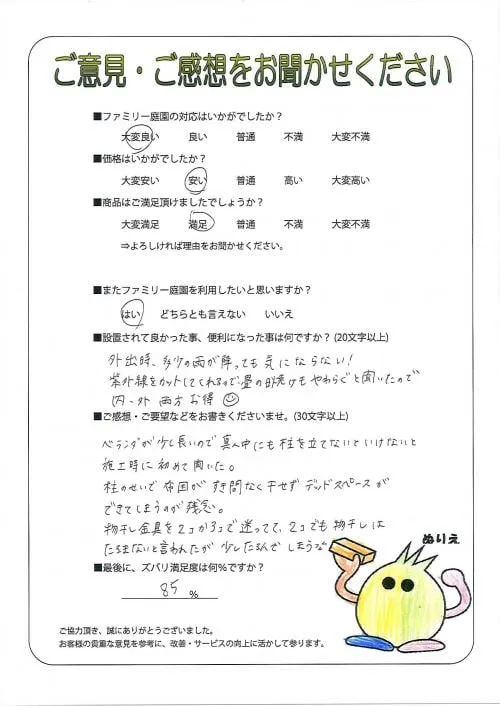 ご意見・ご感想をお聞かせください
■ファミリー庭園の対応はいかがでしたか？
大変良い 良い 普通 不満 大変不満
■価格はいかがでしたか？
大変安い 安い 普通 高い 大変高い
■商品はご満足頂けましたでしょうか？
大変満足 満足 普通 不満 大変不満
⇒よろしければ理由をお聞かせください。
■またファミリー庭園を利用したいと思いますか？
はい どちらとも言えない いいえ
■設置されて良かった事、便利になった事は何ですか？ (20文字以上)
外出時、多少の雨が降っても気にならない！
紫外線をカットしてくれるので、畳の日焼けもやわらぐと聞いたので
内・外 両方お得 ☺
■ご感想・ご要望などをお書きくださいませ。(30文字以上)
ベランダが少し長いので真ん中にも柱を立てないといけないと
施工時に初めて聞いた。
柱のせいで布団がすき間なく干せずデッドスペースが
できてしまうのが残念。
物干し金具を2コか3コで迷ってて、2コでも物干しは
たるまないと言われたが 少したるんでしまうな
ぬりえ
■最後に、ズバリ満足度は何％ですか？
85 %
ご協力頂き、誠にありがとうございました。
お客様の貴重な意見を参考に、改善・サービスの向上に活かして参ります。